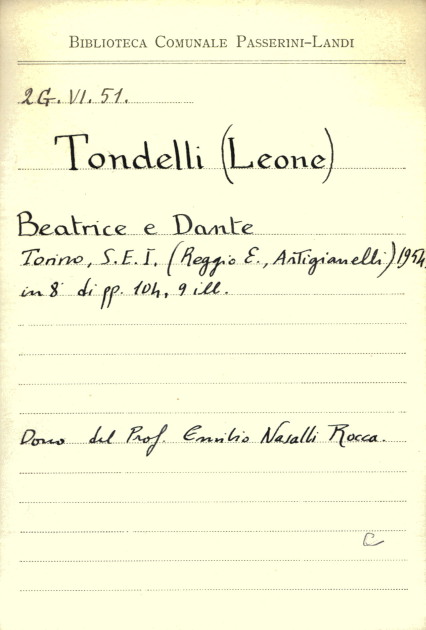 BIBLIOTECA COMUNALE PASSERINI–LANDI
2G. VI. 51.
Tondelli (Leone)
Beatrice e Dante
Torino, S.E.I. (Reggio E., Artigianelli) 1954,
in 8° di pp. 104, 9 ill.
Dono del Prof. Emilio Nasalli Rocca.
C